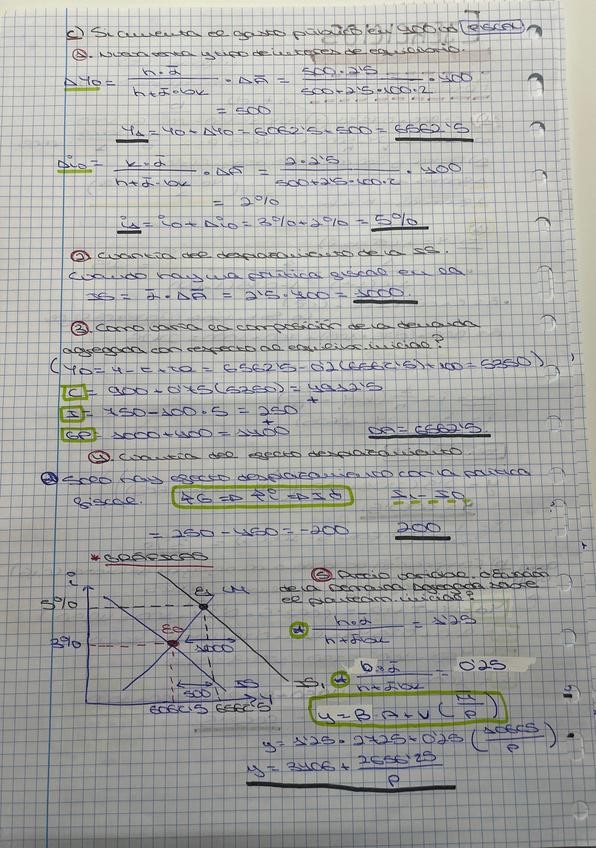 c) Si aumenta el gasto público en 400 → fiscal
① Nueva renta y tipo de interés de equilibrio.
ΔY0 = h·ᾱ / h+ᾱ·bk · ΔĀ = 500·2'5 / 500+2'5·100·2 · 400
= 500
Y1 = Y0 + ΔY0 = 6062'5 + 500 = 6562'5
Δi0 = k·ᾱ / h+ᾱ·bk · ΔĀ = 2·2'5 / 500+2'5·100·2 · 400
= 2%
i1 = i0 + Δi0 = 3% + 2% = 5%
② Cuantía del desplazamiento de la IS.
Cuando hay una política fiscal en la
IS = ᾱ·ΔĀ = 2'5·400 = 1000
③ Como varía la composición de la demanda
agregada con respecto al equilibrio inicial?
(YD = Y - T + TR = 6562'5 - 0'2(6562'5) + 100 = 5350)
C = 900 + 0'75(5350) = 4912'5
I = 750 - 100·5 = 250 +
GP = 1000 + 400 = 1400 +
DA = 6562'5
④ Cuantía del efecto desplazamiento.
Solo hay efecto desplazamiento con la política
fiscal. ↑G => ↑i => I↓ I1 - I0
= 250 - 450 = -200 200
* GRÁFICAS
⑤ Precio variable. ecuación
de la demanda agregada sobre
el planteam. inicial?
h·ᾱ / h+ᾱbk = 1'25
b·ᾱ / h+ᾱbk = 0'25
Y = β·A + γ (M/P)
Y = 1'25·2725 + 0'25 (10605/P)
Y = 3406 + 2656'25/P
i
5%
3%
E1
LM
E0
1000
500
IS
IS1
Y
6062'5
6562'5